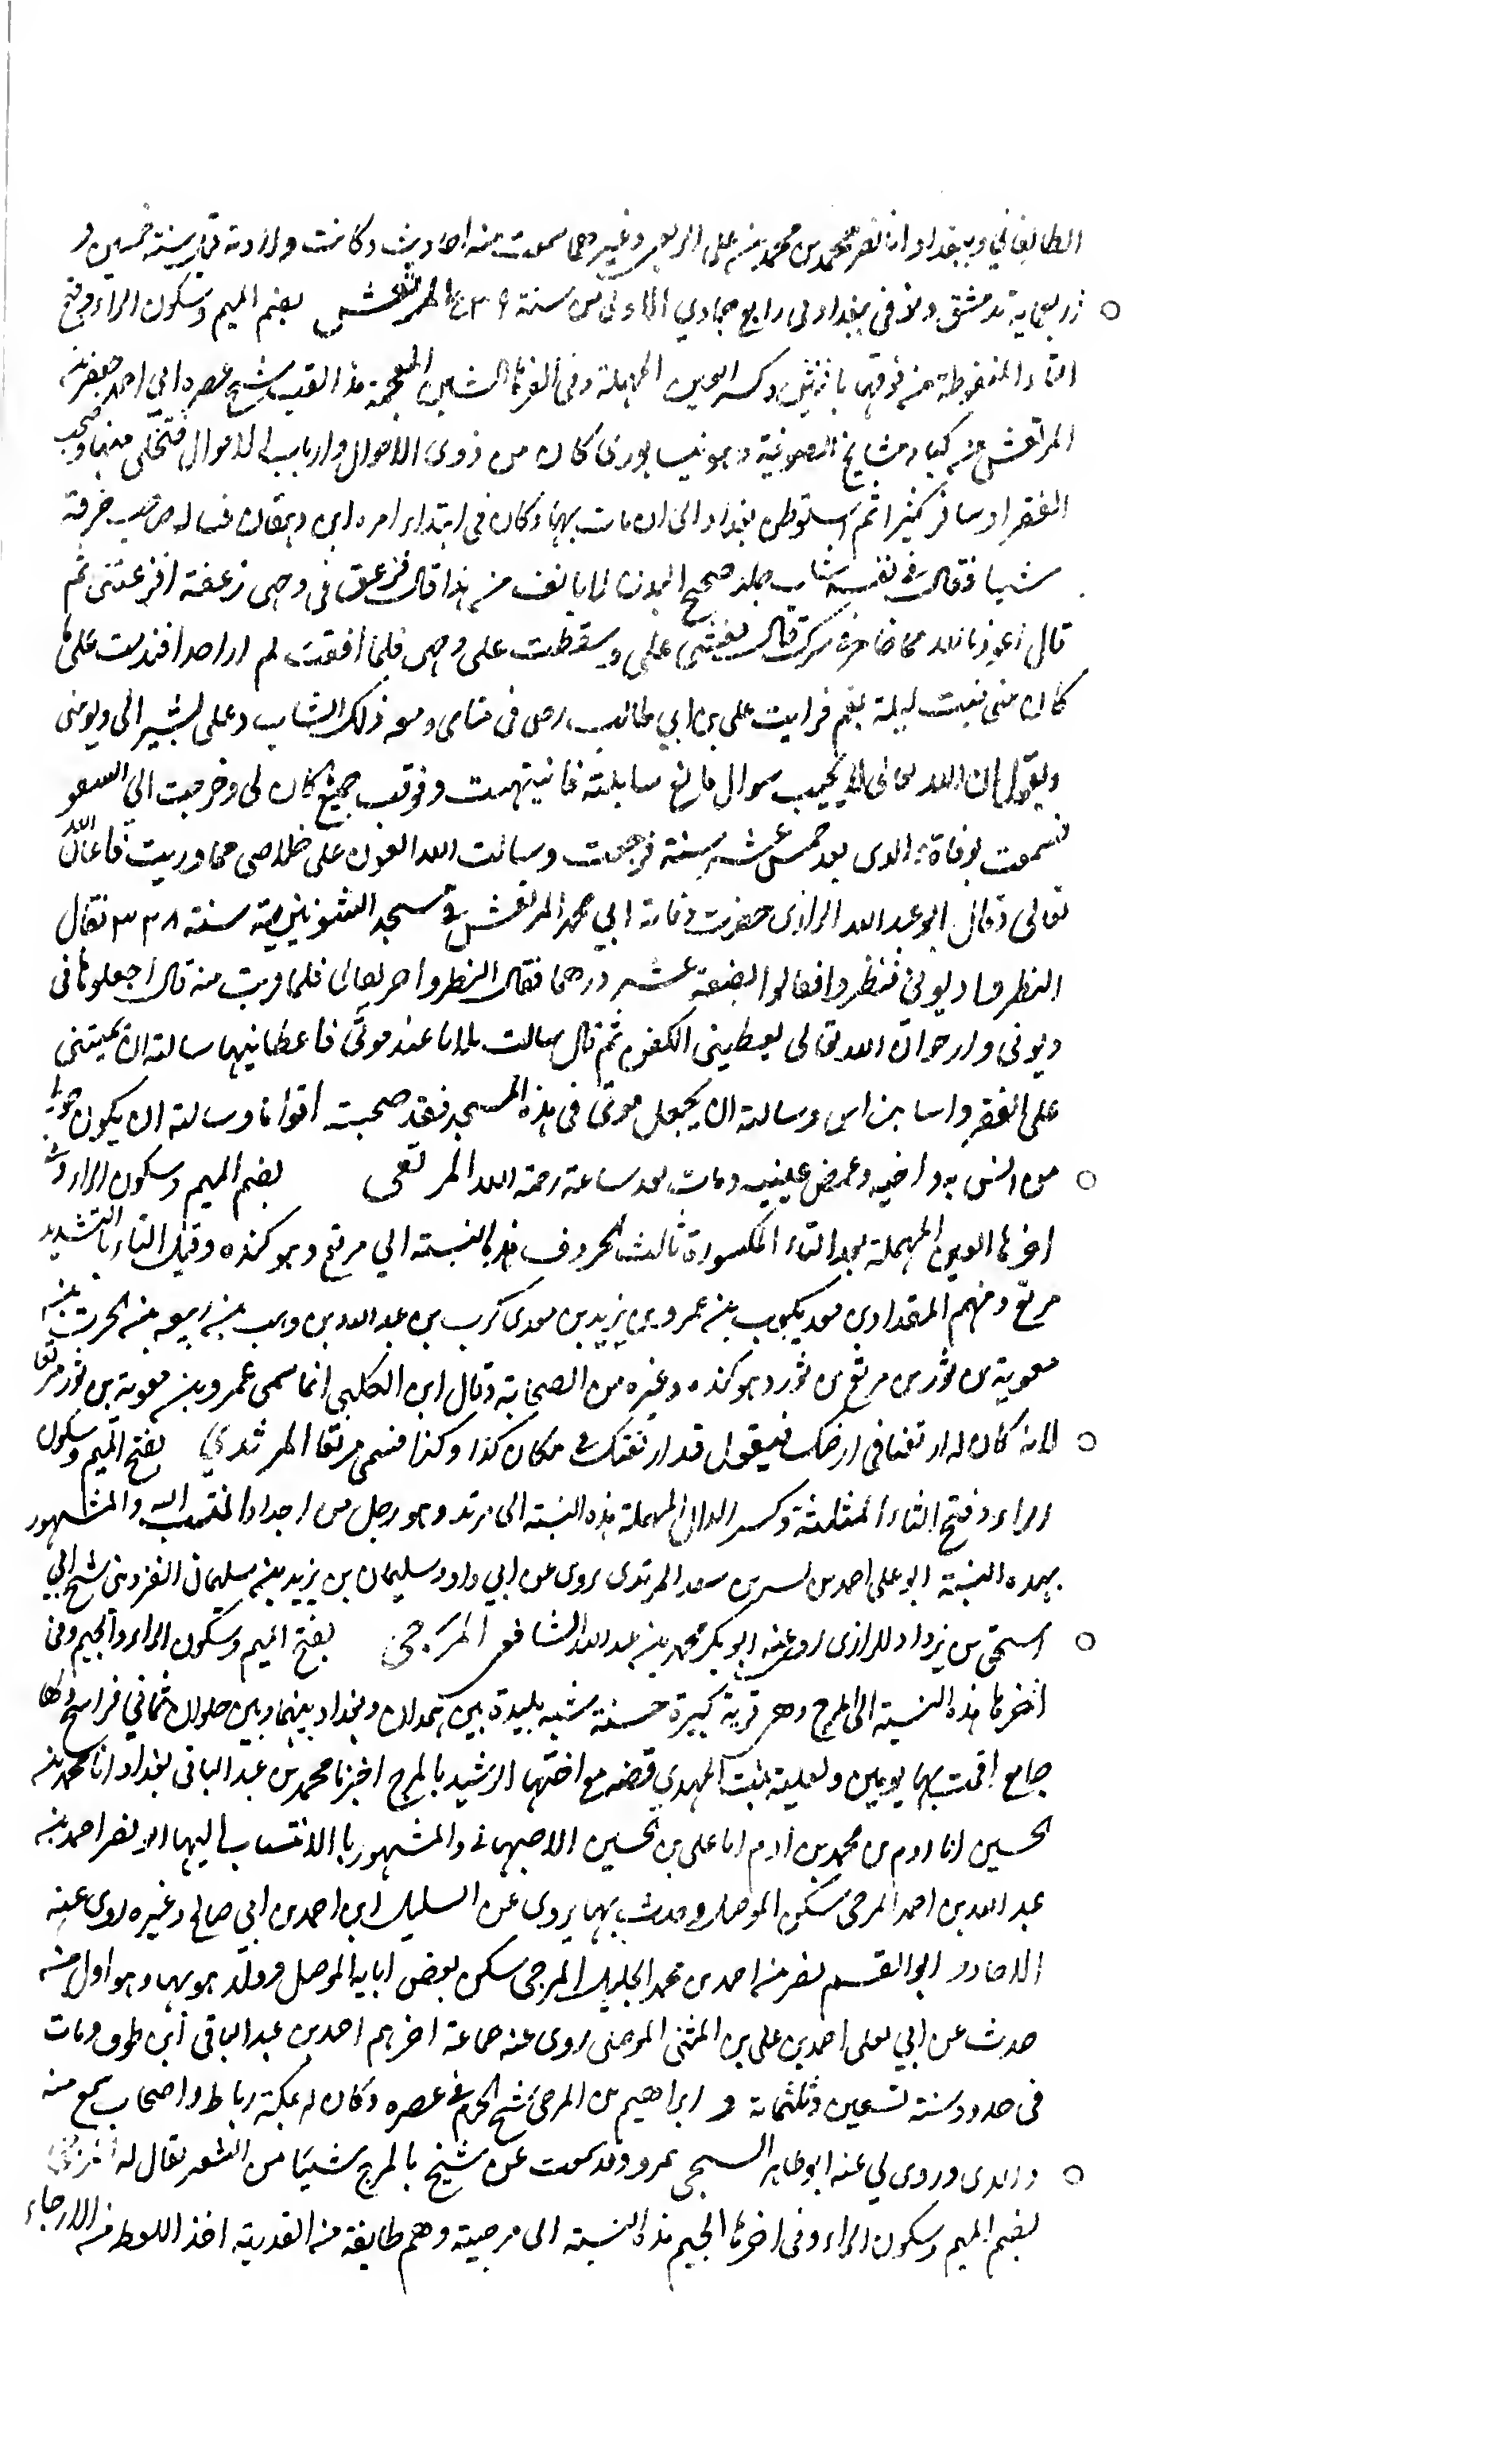 الطالقاني وببغداد ابا نصر محمد بن محمد بن علي الزينبي وغيرهما سمعت منه احاديث وكانت ولادته في سنة خمسين و
اربعماية بدمشق وتوفي ببغداد في رابع جمادي الاولى من سنة المرتعش بضم الميم وسكون الراء وفتح
التاء المنقوطة من فوقها باثنتين وكسر العين المهملة وفي اخرها الشين المعجمة هذا لقب شيخ عصره ابي احمد جعفر بن
المرتعش من كبار مشايخ الصوفية وهو نيسابوري كان من ذوي الاحوال وارباب الاموال فتخلى منها وصحب
الفقراء وسافر كثيرا ثم استوطن بغداد الى ان مات بها وكان في ابتداء امره ابن دهقان فساله صاحب خرقة
شيا فقال في نفسه شاب جلد صحيح البدن لا يانف من هذا قال فزعق في وجهي زعقة افزعتني ثم
قال اعوذ بالله مما خامر سرك قال فغشي علي وسقطت على وجهي فلما افقت لم ار احدا فندمت على ما
كان مني فبت ليلة بغم فرايت علي بن ابي طالب رضى في منامي ومعه ذلك الشاب وعلي يشير الي ويوبخني
ويقول ان الله تعالى لا يجيب سوال مانع سايله فانتبهت وفرقت جميع ما كان لي وخرجت الي السفر
فسمعت بوفاة والدي بعد خمس عشر سنة فرجعت وسالت الله العون على خلاصي مما ورثت فاعان الله
تعالى وقال ابو عبد الله الرازي حضرت وفاة ابي محمد المرتعش في مسجد الشونيزية سنة ٣٢٨ فقال
انظروا ديوني فنظروا فقالوا بضعة عشر درهما فقال انظروا خريقاتي فلما قربت منه قال اجعلوها في
ديوني وارجو ان الله تعالى يعطيني الكفن ثم قال سالت ثلاثا عند موتي فاعطانيها سالته ان يميتني
على الفقر راسا براس وسالته ان يجعل موتي في هذه المسجد فقد صحبت اقواما وسالته ان يكون حولي
من انس به واحبه وغمض عينيه ومات بعد ساعة رحمه الله المرتعى بضم الميم وسكون الراء وفي
اخرها العين المهملة بعد التاء المكسورة ثالث الحروف هذه النسبة الي مرتع وهو كنده وقيل التاء بالتشديد
مرتع ومنهم المقداد بن معديكرب بن عمرو بن يزيد بن معدي كرب بن عبد الله بن وهب بن ربيعه بن الحرث بن
معوية بن ثور بن مرتع بن ثور وهو كنده وغيره من الصحابة وقال ابن الكلبي انما سمي عمرو بن معوية بن ثور مرتعا
لانه كان له ارتعنا في ارضك فيقول قد ارتعتك في مكان كذا وكذا فسمي مرتعا المرثدي بفتح الميم وسكون
الراء وفتح الثاء المثلثة وكسر الدال المهملة هذه النسبة الى مرثد وهو رجل من اجداد المنتسب اليه والمشهور
بهذه النسبة ابو علي احمد بن بشر بن سعد المرثدي يروي عن ابي داود سليمان بن يزيد بن سليمان القزويني شيخ ابي
اسحق بن يزداد الرازي روى عنه ابو بكر محمد بن عبد الله الشافعي المرجي بفتح الميم وسكون الراء والجيم وفي
اخرها هذه النسبة الى المرج وهي قرية كبيرة حسنة شبه بليدة بين همدان وبغداد بينها وبين حلوان ثماني فراسخ ولها
جامع اقمت بها يومين ولعلية بنت المهدي قصة مع اختها الرشيد بالمرج اخبرنا محمد بن عبد الباقي ببغداد انا محمد بن
الحسين انا ادم بن محمد بن ادم انا علي بن الحسين الاصبهاني والمشهور بالانتساب اليها ابو نصر احمد بن
عبد الله بن احمد المرجي سكن الموصل وحدث بها يروي عن السليل ابن احمد بن ابي صالح وغيره روى عنه
ابو القسم نصر بن احمد بن محمد الخليل المرجي سكن بعض ابايه الموصل وولد هو بها وهو اول من
حدث عن ابي يعلى احمد بن علي بن المثنى الموصلي روى عنه جماعة اخرهم احمد بن عبد الباقي ابن طوق ومات
في حدود سنة تسعين وثلثماية و ابراهيم بن المرجي شيخ الحرم في عصره وكان له بمكة رباط واصحاب سمع منه
والدي وروى لي عنه ابو طاهر السنجي بمرو وقد سمعت عن شيخ بالمرج شيئا من الشعر يقال له المرجي
بضم الميم وسكون الراء وفي اخرها الجيم هذه النسبة الى مرجية وهم طايفة من القدرية اخذ اللفظ من الارجاء